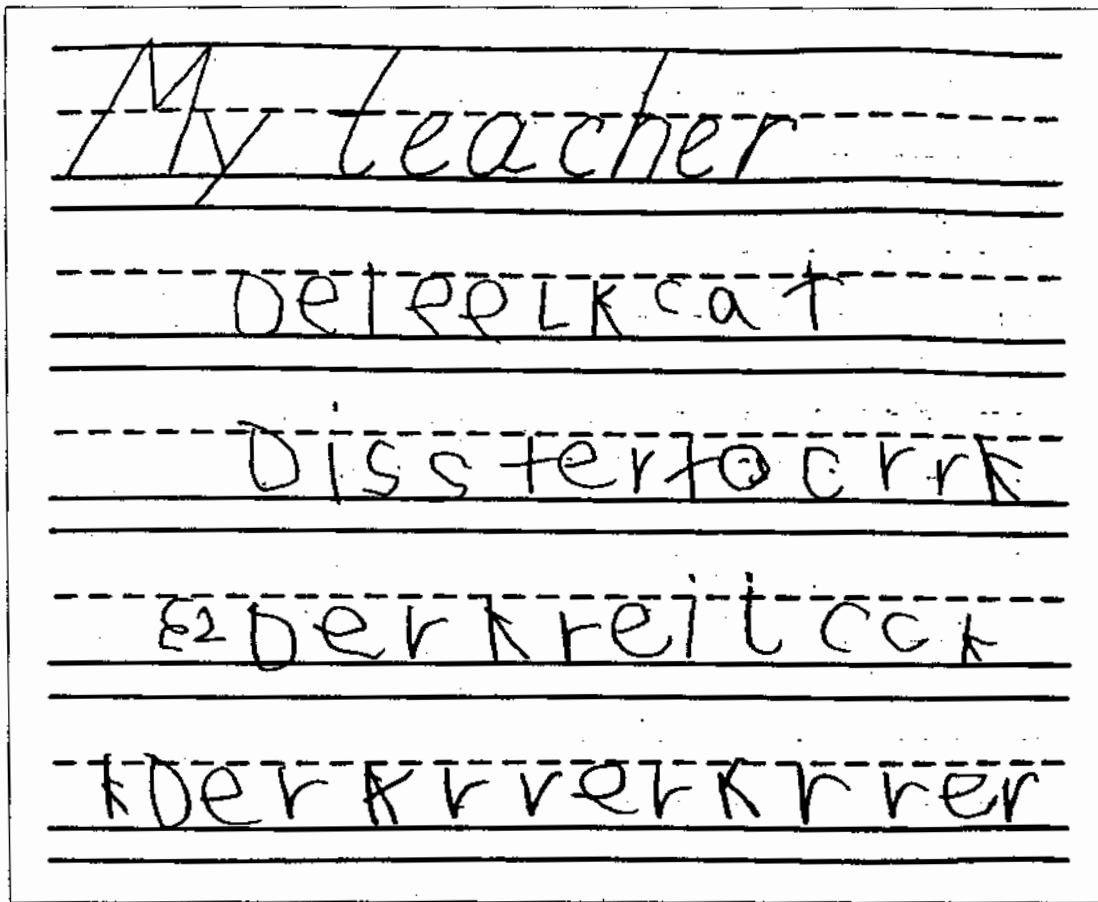 My teacher
DeleeLKcat
Dissterfocrrk
Derkreitcck
kDerkrrerkrrer